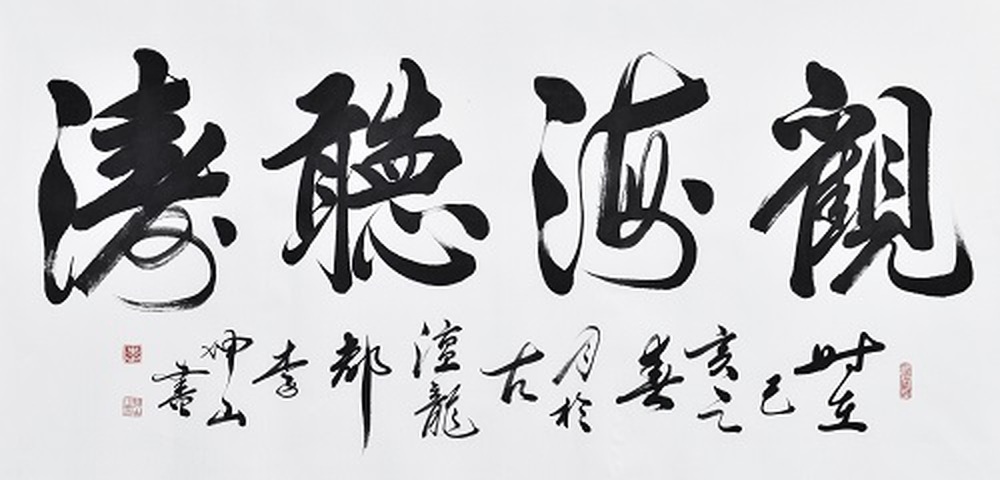 觀海聽濤
時在己亥之春月於古澶龍都李坤山書